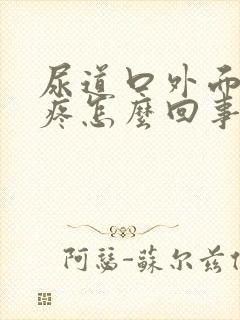 尿道口外面
疼怎麼回事
阿瑟-蘇尔兹